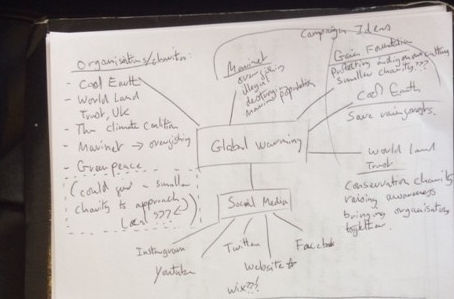 Campaign Ideas
Organisations/charities:
- Cool Earth
- World Land
Trust, UK
- The climate Coalition
- Marinet → overfishing
- Greenpeace
(could find a smaller
charity to approach
Local ???)
Marinet
overfishing
illegal
destroying
marine population
Gaia Foundation
Protecting indigenous
smaller charity???
Cool Earth
Save rainforests.
World Land
Trust
Conservation charity
raising awareness
bringing organisations
together
Global warming
Social Media
Instagram
Youtube
Twitter
Website
Wix???
Facebook